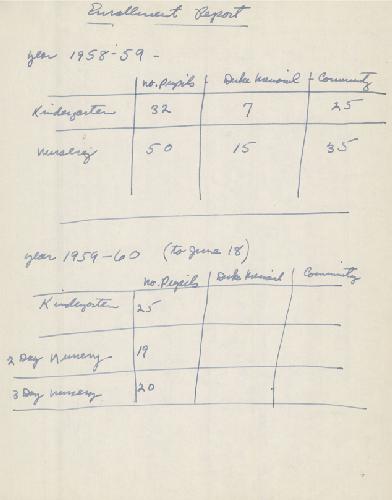 Enrollment Report
year 1958-59 -
no. Pupils Duke Community
Kindergarten 32 7 25
Nursery 50 15 35
year 1959-60 (to June 18)
no. Pupils Duke Community
Kindergarten 25
2 Day Nursery 19
3 Day Nursery 20